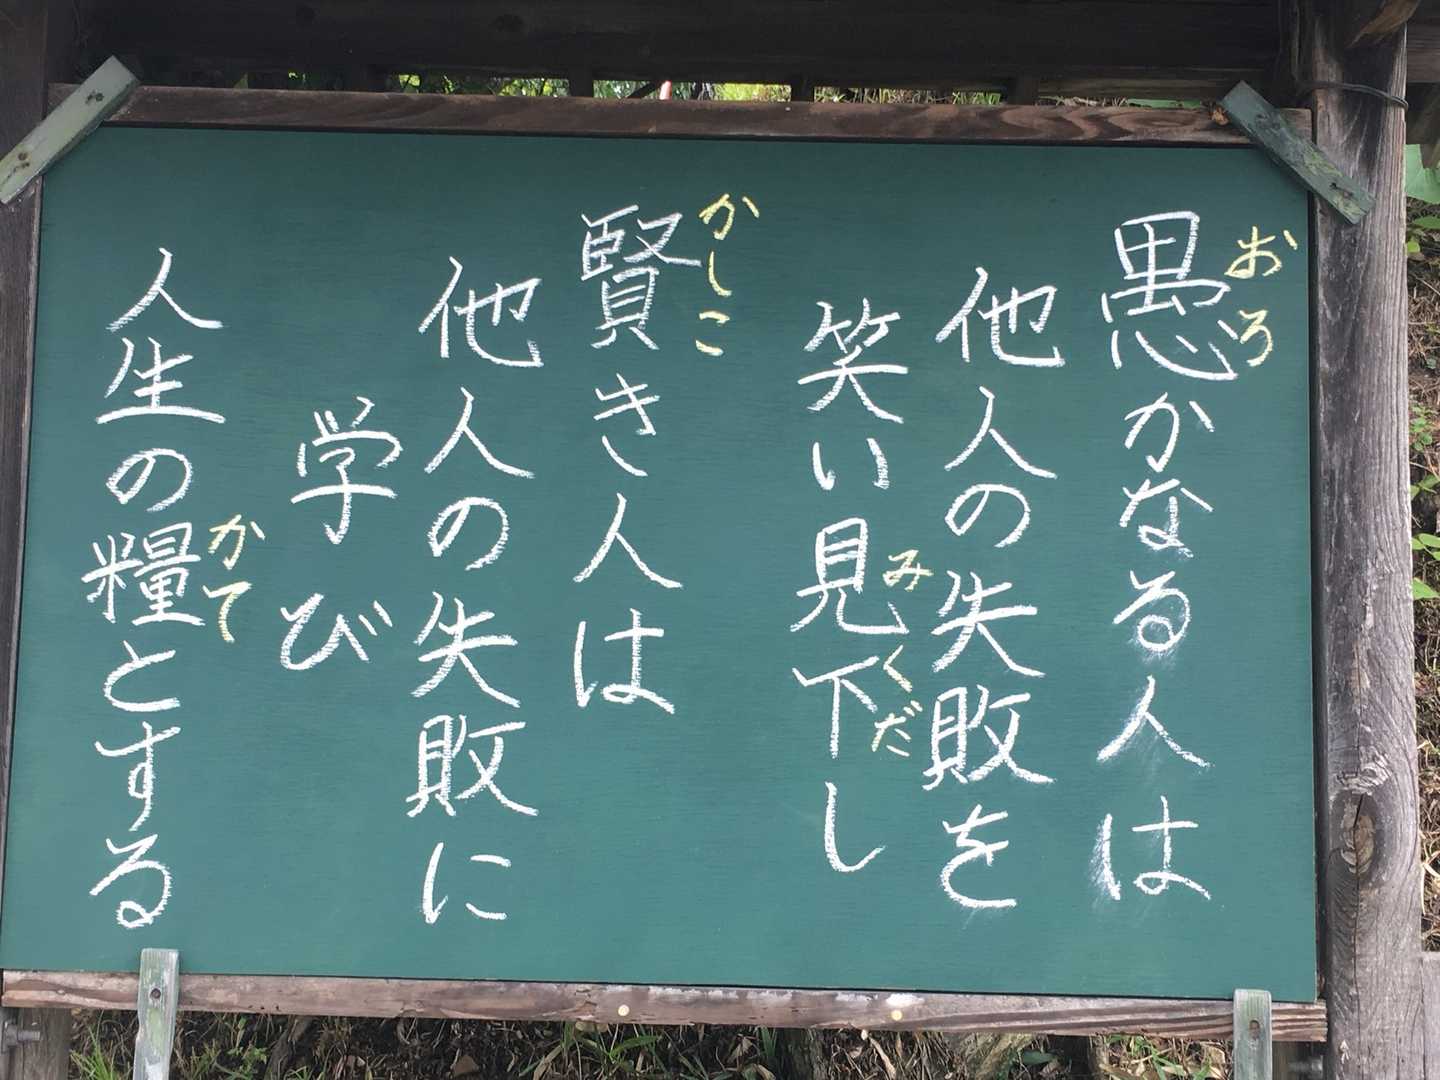 愚かなる人は
おろ
他人の失敗を
笑い見下し
みくだ
賢き人は
かしこ
他人の失敗に
学び
人生の糧とする
かて